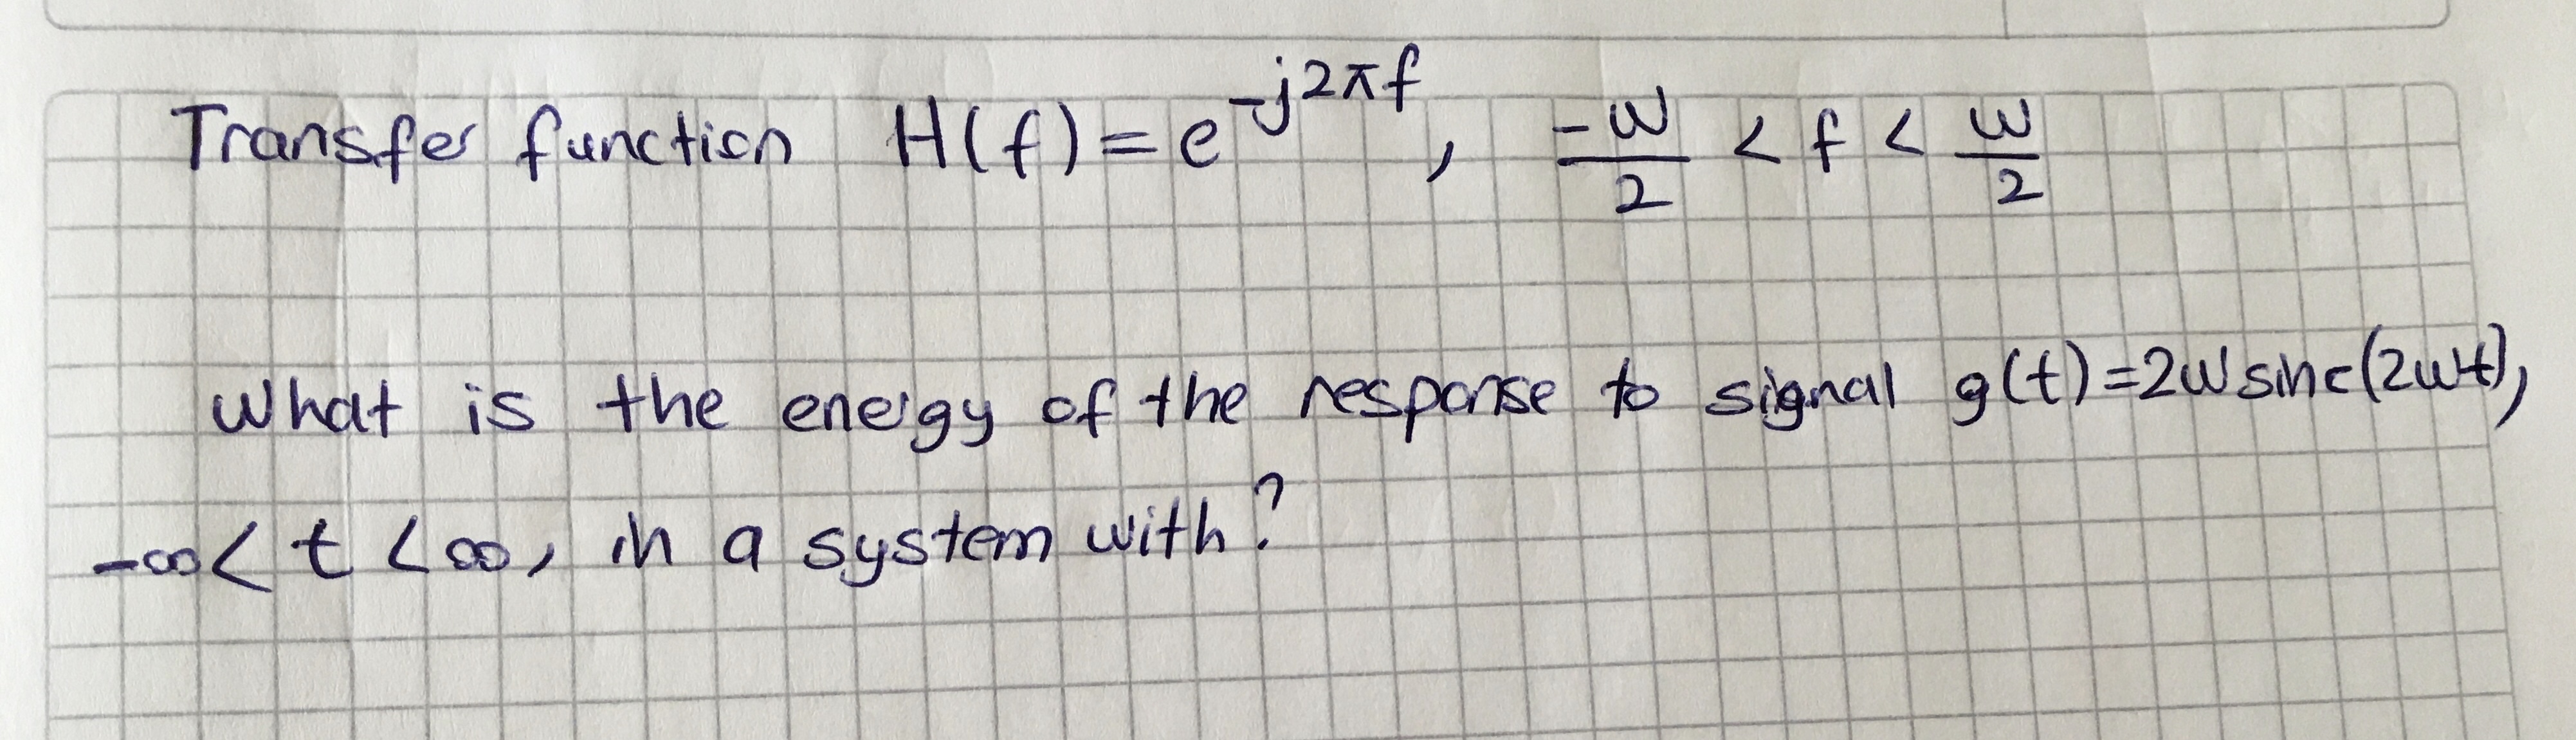 Transfer function H(f) = e^{-j2πf}, -w/2 < f < w/2
What is the energy of the response to signal g(t)=2w sinc(2wt),
-∞< t <∞, in a system with?